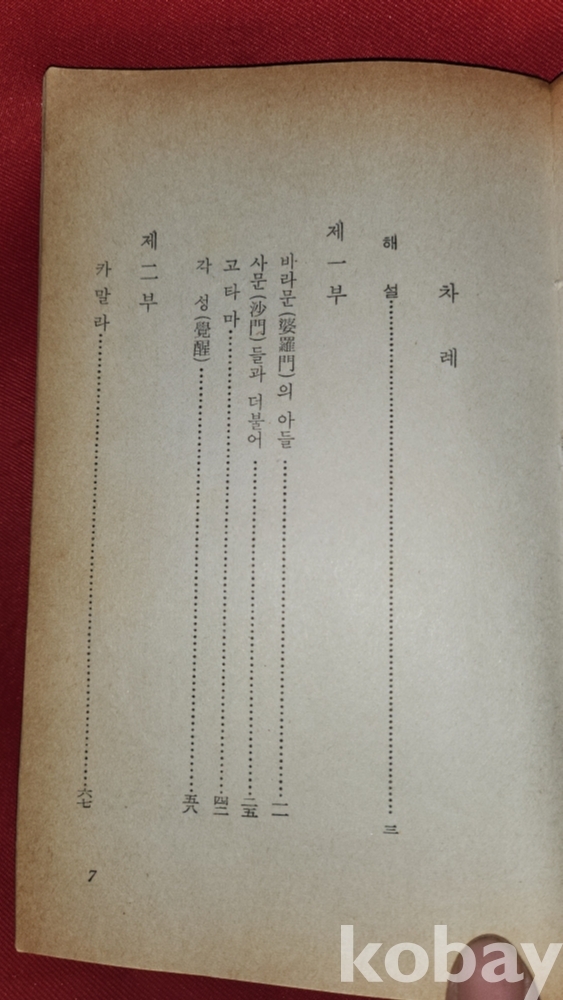 차례
해설 三
제一부
바라문(婆羅門)의 아들 一一
사문(沙門)들과 더불어 二五
고타마 四二
각성(覺醒) 五八
제二부
카말라 六七
7
kobay